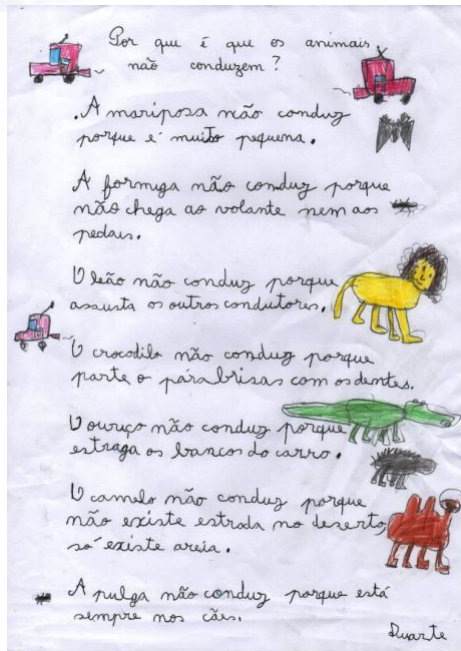 Por que é que os animais
não conduzem?
.A mariposa não conduz
porque é muito pequena.
A formiga não conduz porque
não chega ao volante nem aos
pedais.
O leão não conduz porque
assusta os outros condutores.
O crocodilo não conduz porque
parte o párabrisas com os dentes.
O ouriço não conduz porque
estraga os bancos do carro.
O camelo não conduz porque
não existe estrada no deserto,
só existe areia.
A pulga não conduz porque está
sempre nos cães.
Duarte